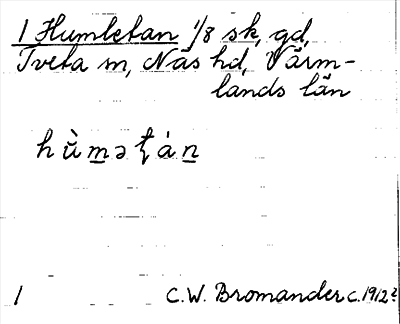 1 Humletan 1/8 sk, gd,
Tveta sn, Näs hd, Värm-
lands län
hù̈m̲əƫán̲
1 C.W. Bromander c. 1912?